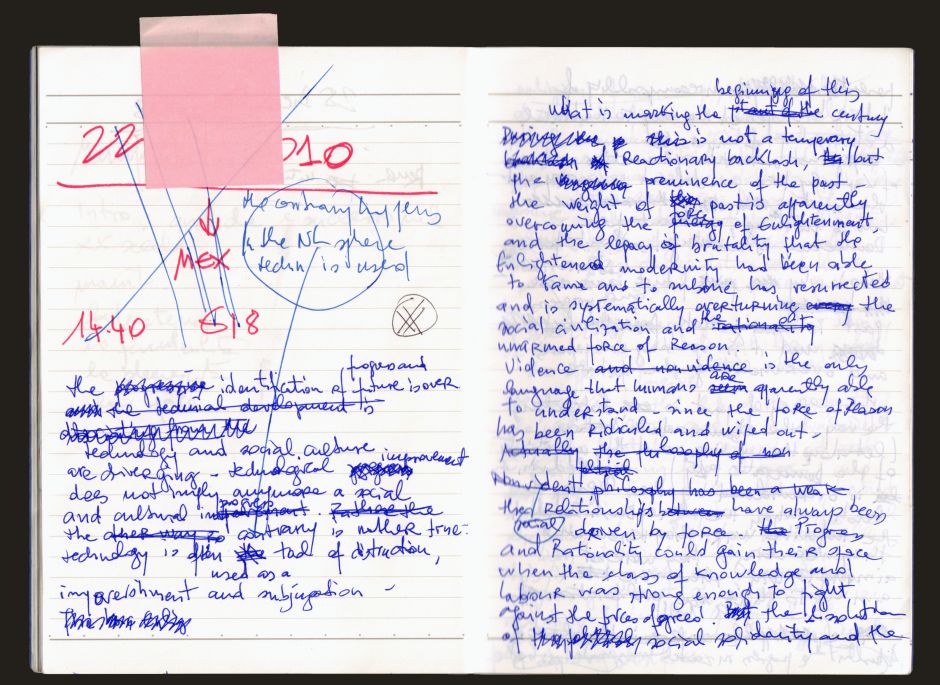 22
010
the contrary happens
in the NL sphere
techn is used
MEX
14.40
G18
progress and
the progressive identification of future is over
the technical development is
technology and social culture
are diverging - technological progress improvement
does not imply anymore a social
and cultural progress
the other way to contrary is rather true.
technology is often tool of distruction,
used as a
impoverishment and subjugation -
beginning of this
what is marking the start of the century
this is not a temporary
Reactionary backlash, but
the prominence of the past -
the weight of the past is apparently
force
overcoming the energy of Enlightenment,
and the legacy of brutality that the
Enlightened modernity had been able
to tame and to subdue has resurrected
and is systematically overturning the
social civilization and the rationality
unarmed force of Reason.
Violence and nonviolence is the only
are
language that humans seem apparently able
to understand - since the force of Reason
has been ridiculed and wiped out -
Actually the philosophy of non
Nonviolent philosophy has been a weak
The relationships between have always been
social driven by force. the Progress
and Rationality could gain their space
when the class of knowledge and
labour was strong enough to fight
against the forces of greed. But the dissolution
of social solidarity and the